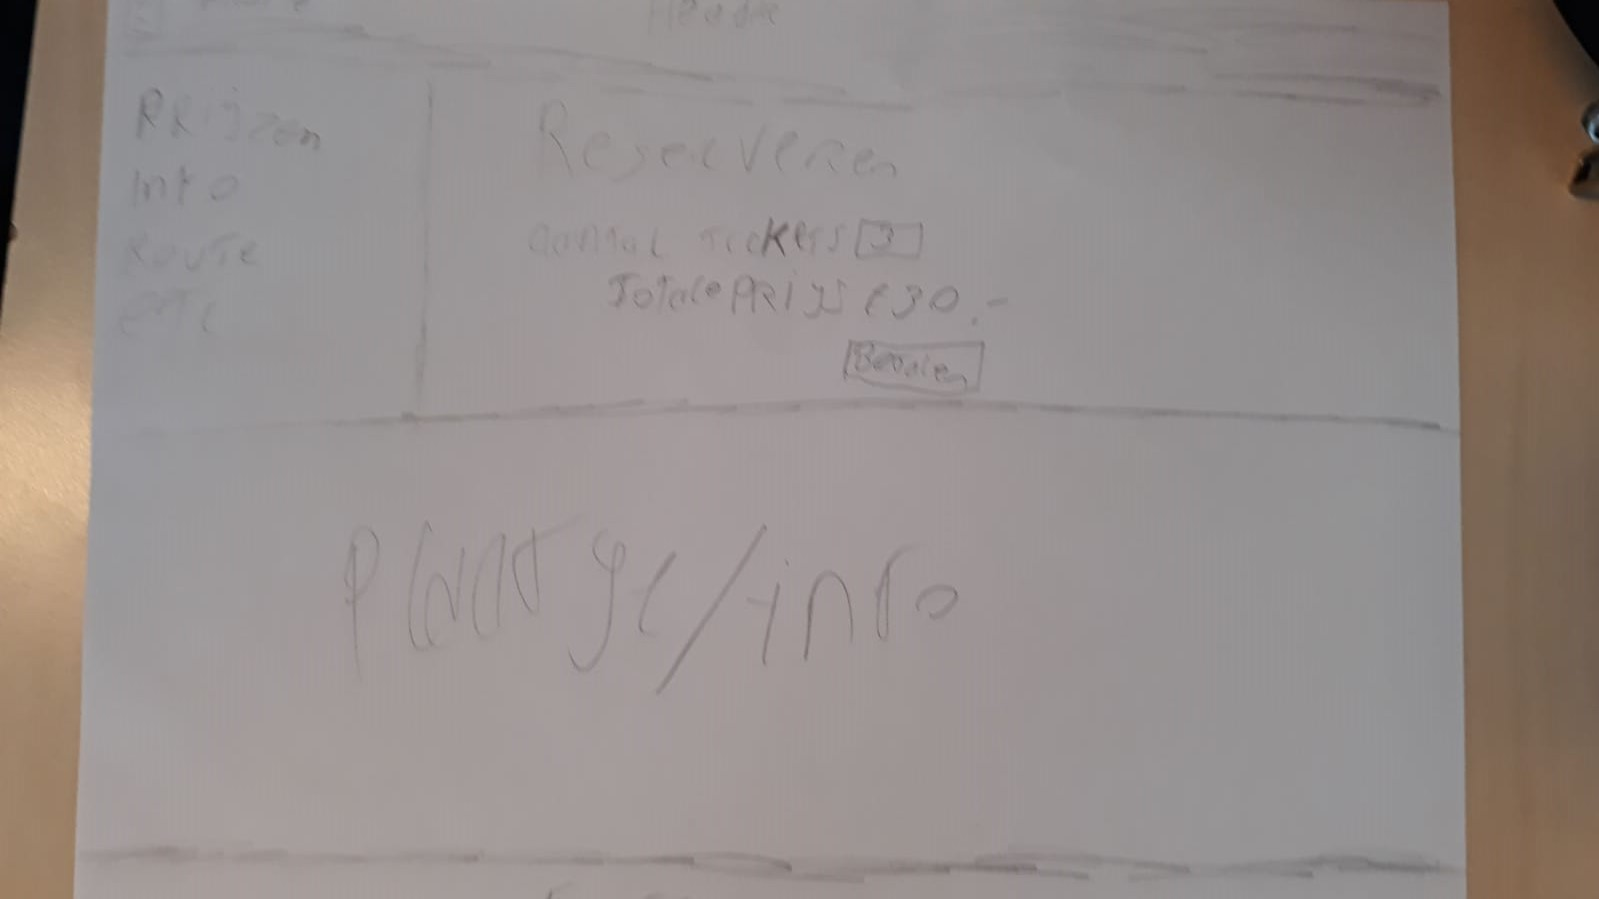 Header
PRijzen
Info
Route
etc
Reserveren
aantal Tickets 3
Totale PRIJS €30,-
Betalen
Plaatje/info